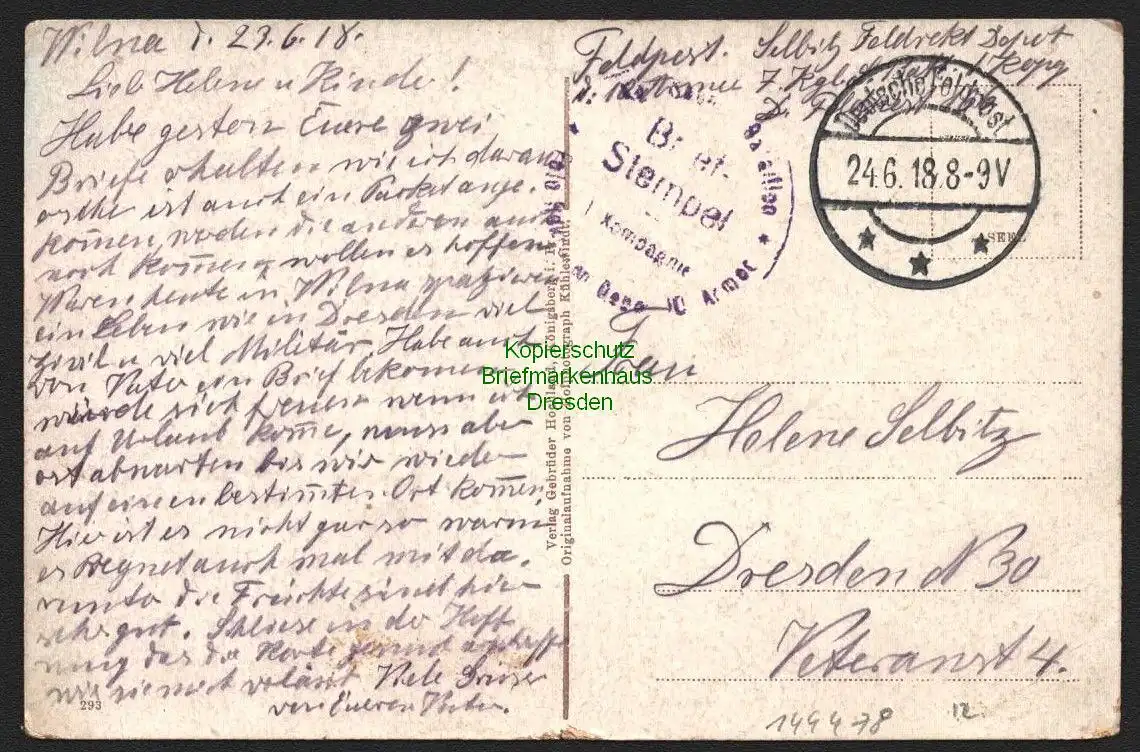 Wilna d. 23.6.18.
Lieb Helene u Kinder!
Habe gestern Euere zwei
Briefe erhalten wie ich daraus
ist auch ein Packet ange-
kom̅en, werden die andren auch
noch kom̅en wollen es hoffen
Waren heute in Wilna
ein Leben wie in Dresden viel
Zivil u viel Militär. Habe auch
von Vater ein Brief bekomen
würde sich freuen wenn ich
auf Urlaub kom̅e, muss aber
erst abwarten bis wir wieder
auf einen bestim̅ten Ort kom̅en
Hier ist es nicht gar so warm
es Regnet auch mal mit da-
runter die Früchte sind hier
sehr gut. Schliese in der Hoff
nung das die Karte gesund antrifft
wie sie mich verlässt Viele Grüsse
von Eueren Vater.
293
Verlag Gebrüder Hochland, Königsberg i. Pr.
Originalaufnahme von Hofphotograph Kühlewindt.
Feldpost. Selbitz Feldrekt Depot
10 Armee
Brief-
Stempel
Kompagnie
10 Armee
Deutsche Feldpost
24.6.18.8-9V
Kopierschutz
Briefmarkenhaus
Dresden
Frau
Helene Selbitz
Dresden N 30
Veteranstr 4.
1494-78
12